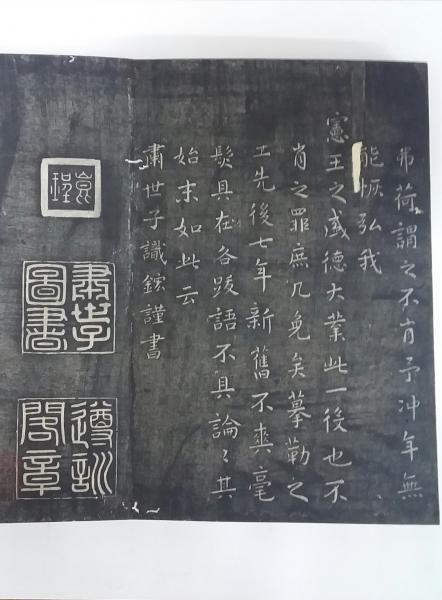 弗荷謂之不肖予冲年無
能恢弘我
憲王之盛德大業此一役也不
肖之罪庶几免矣摹勒之
工先後七年新舊不爽毫
髮具在各跋語不具論〻其
始末如此云
肅世子識鋐謹書
肅世子
圖書
遵訓
閣章